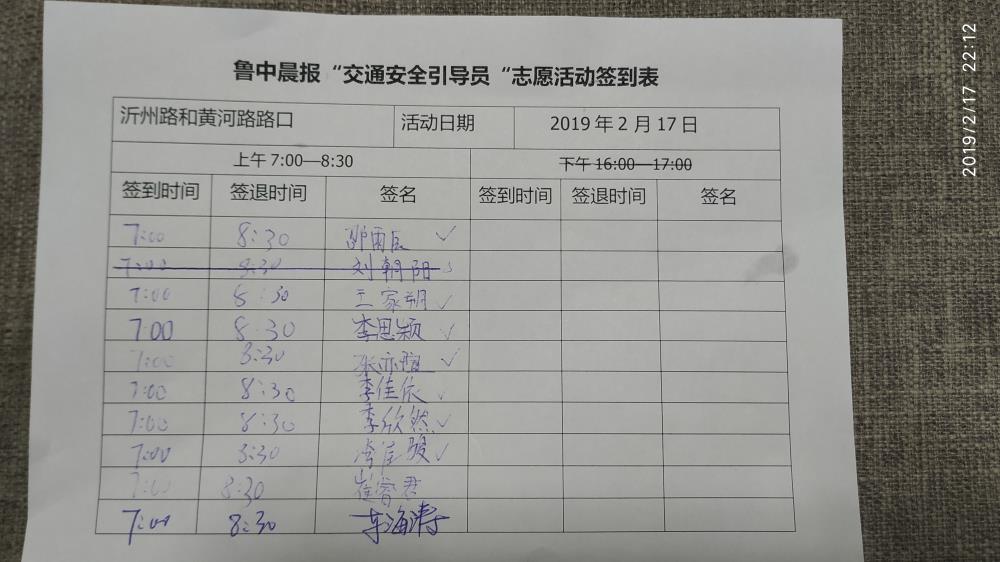 2019/2/17 22:12
鲁中晨报“交通安全引导员“志愿活动签到表
沂州路和黄河路路口 活动日期 2019年2月17日
上午7:00—8:30 下午16:00—17:00
签到时间 签退时间 签名 签到时间 签退时间 签名
7:00 8:30 邵雨臣 ✓
7:00 8:30 刘朝阳
7:00 8:30 王家朔 ✓
7:00 8:30 李思颖 ✓
7:00 8:30 张亦瑄 ✓
7:00 8:30 李佳依 ✓
7:00 8:30 李欣然 ✓
7:00 8:30 ✓
7:00 8:30 崔睿君
7:00 8:30 车海涛